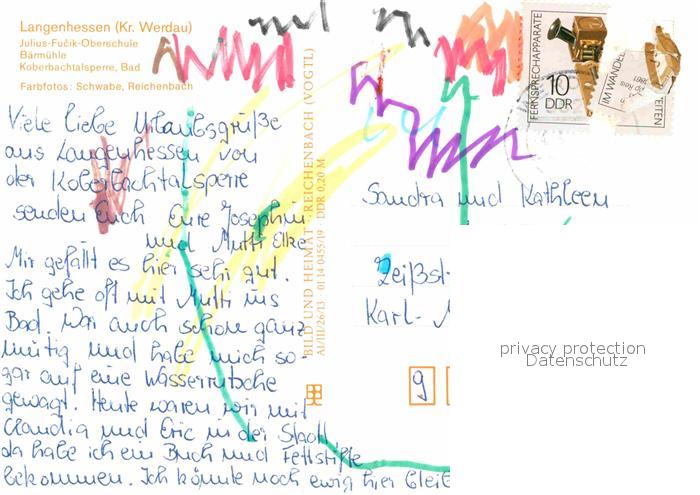 Langenhessen (Kr. Werdau)
Julius-Fučik-Oberschule
Bärmühle
Koberbachtalsperre, Bad
Farbfotos: Schwabe, Reichenbach
Viele liebe Urlaubsgrüße
aus Langenhessen von
der Koberbachtalsperre
senden Euch Eure Josephin
und Mutti Elke
Mir gefällt es hier sehr gut.
Ich gehe oft mit Mutti ins
Bad. War auch schon ganz
mutig und habe mich so-
gar auf eine Wasserrutsche
gewagt. Heute waren wir mit
Claudia und Eric in der Stadt
da habe ich ein Buch und Fettstifte
bekommen. Ich könnte noch ewig hier bleib
BILD UND HEIMAT REICHENBACH (VOGTL)
A1/III/26/13 01 14 0455/19 DDR 0,20 M
FERNSPRECHAPPARATE
IM WANDEL
EITEN
10
DDR
Sandra und Kathleen
Zeißst-
Karl-
9
privacy protection
Datenschutz